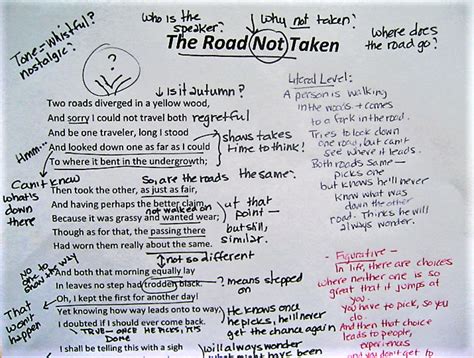 Tone - whistful?
nostalgic?
who is the
speaker?
why not taken?
where does
the road go?
The Road Not Taken
?
is it autumn?
Two roads diverged in a yellow wood,
And sorry I could not travel both
regretful
And be one traveler, long I stood
And looked down one as far as I could
To where it bent in the undergrowth;
shows takes
time to think!
Hmm...
Can't know
what's
down
there
So, are the roads the same?
Then took the other, as just as fair,
And having perhaps the better claim,
not walked on
Because it was grassy and wanted wear;
Though as for that, the passing there
Had worn them really about the same.
at that
point—
but still,
similar.
not so different
No
one to
show the way
And both that morning equally lay
In leaves no step had trodden black.
means stepped
on
Oh, I kept the first for another day!
Yet knowing how way leads onto to way
I doubted if I should ever come back.
He knows once
he picks, he'll never
get the chance again
That
won't
happen
TRUE— once he picks, it's
Done
I shall be telling this with a sigh
will always wonder
what might have been
Literal Level:
A person is walking
in the woods + comes
to a fork in the road.
Tries to look down
one road, but can't
see where it leads.
Both roads same —
picks one
but knows he'll never
know what was
down the other
road. Thinks he will
always wonder.
- Figurative -
In life, there are choices
where neither one is so
great that it jumps at
you.
you have to pick, so you
do.
and then that choice
leads to other
people, experiences